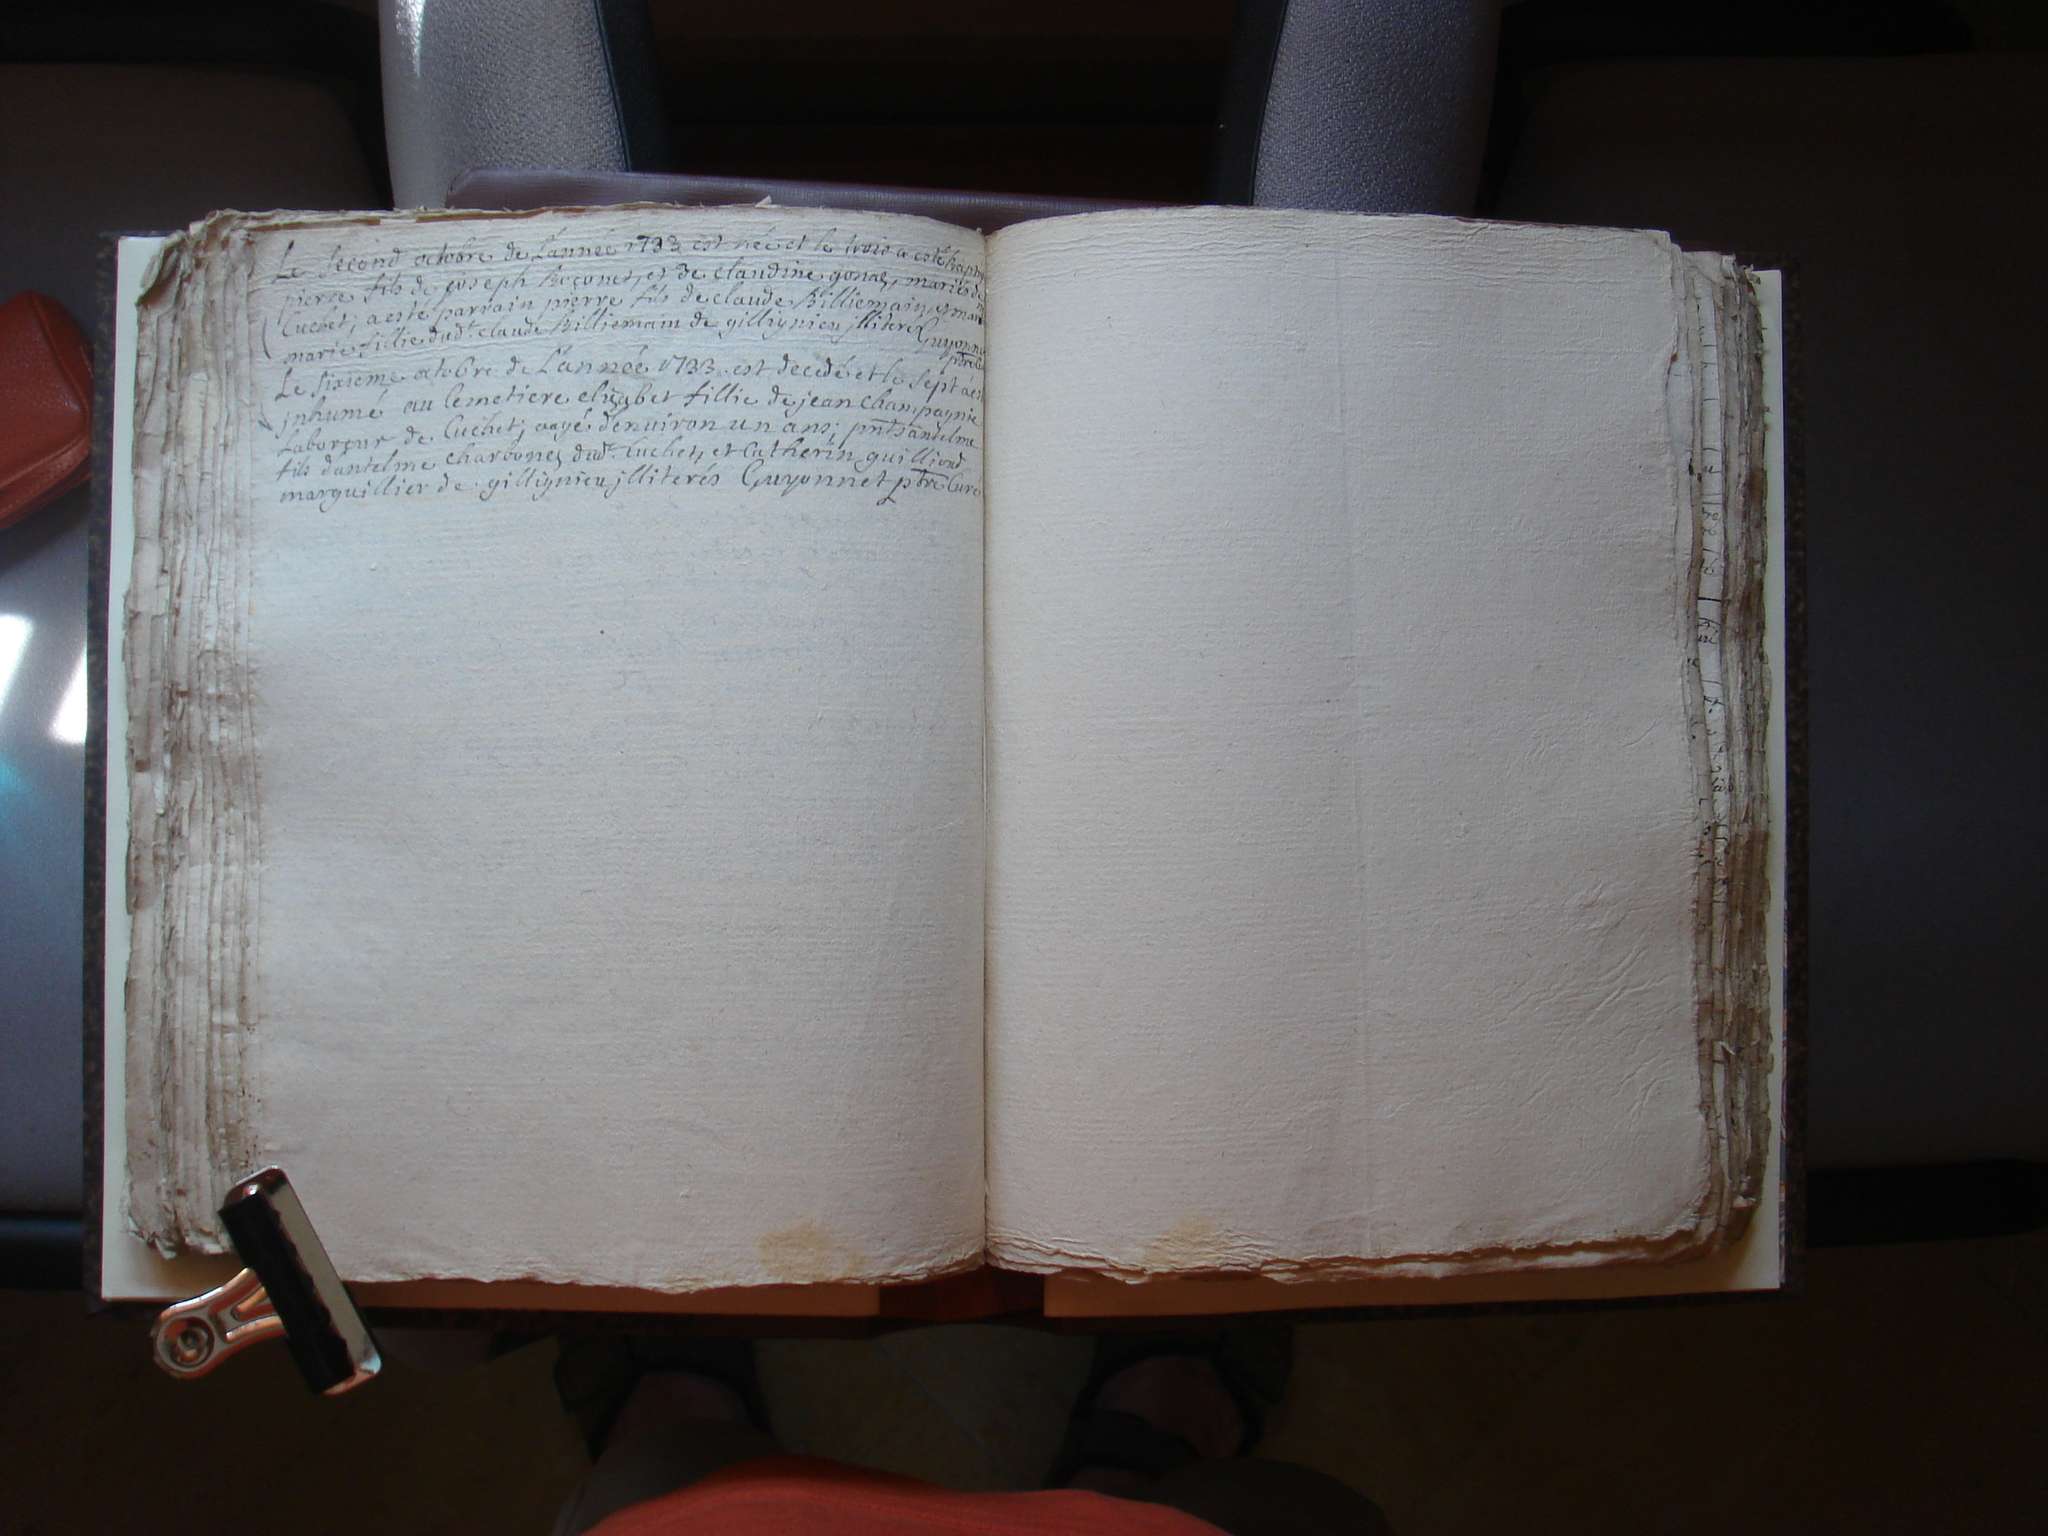 Le second octobre de l'année 1733 est née et le trois a esté baptisé
pierre fils de joseph et de claudine mariés de
Cuchet; a esté parrain pierre fils de claude Billiemain, et mar
marie fillie dudt. claude Billiemain de gillignieu jlliterés Guyonnet
ptre
Le sixieme octobre de l'année 1733 est decedé et le sept a est
jnhumé au Cemetiere elizabet fillie de jean Champagnie
Laboreur de Cuchet; aagé denuiron un ans; pnts antelme
fils dantelme Charbone dudt. Cuchet, et Catherin guilliond
marguillier de gillignieu jlliterés Guyonnet ptre Curé